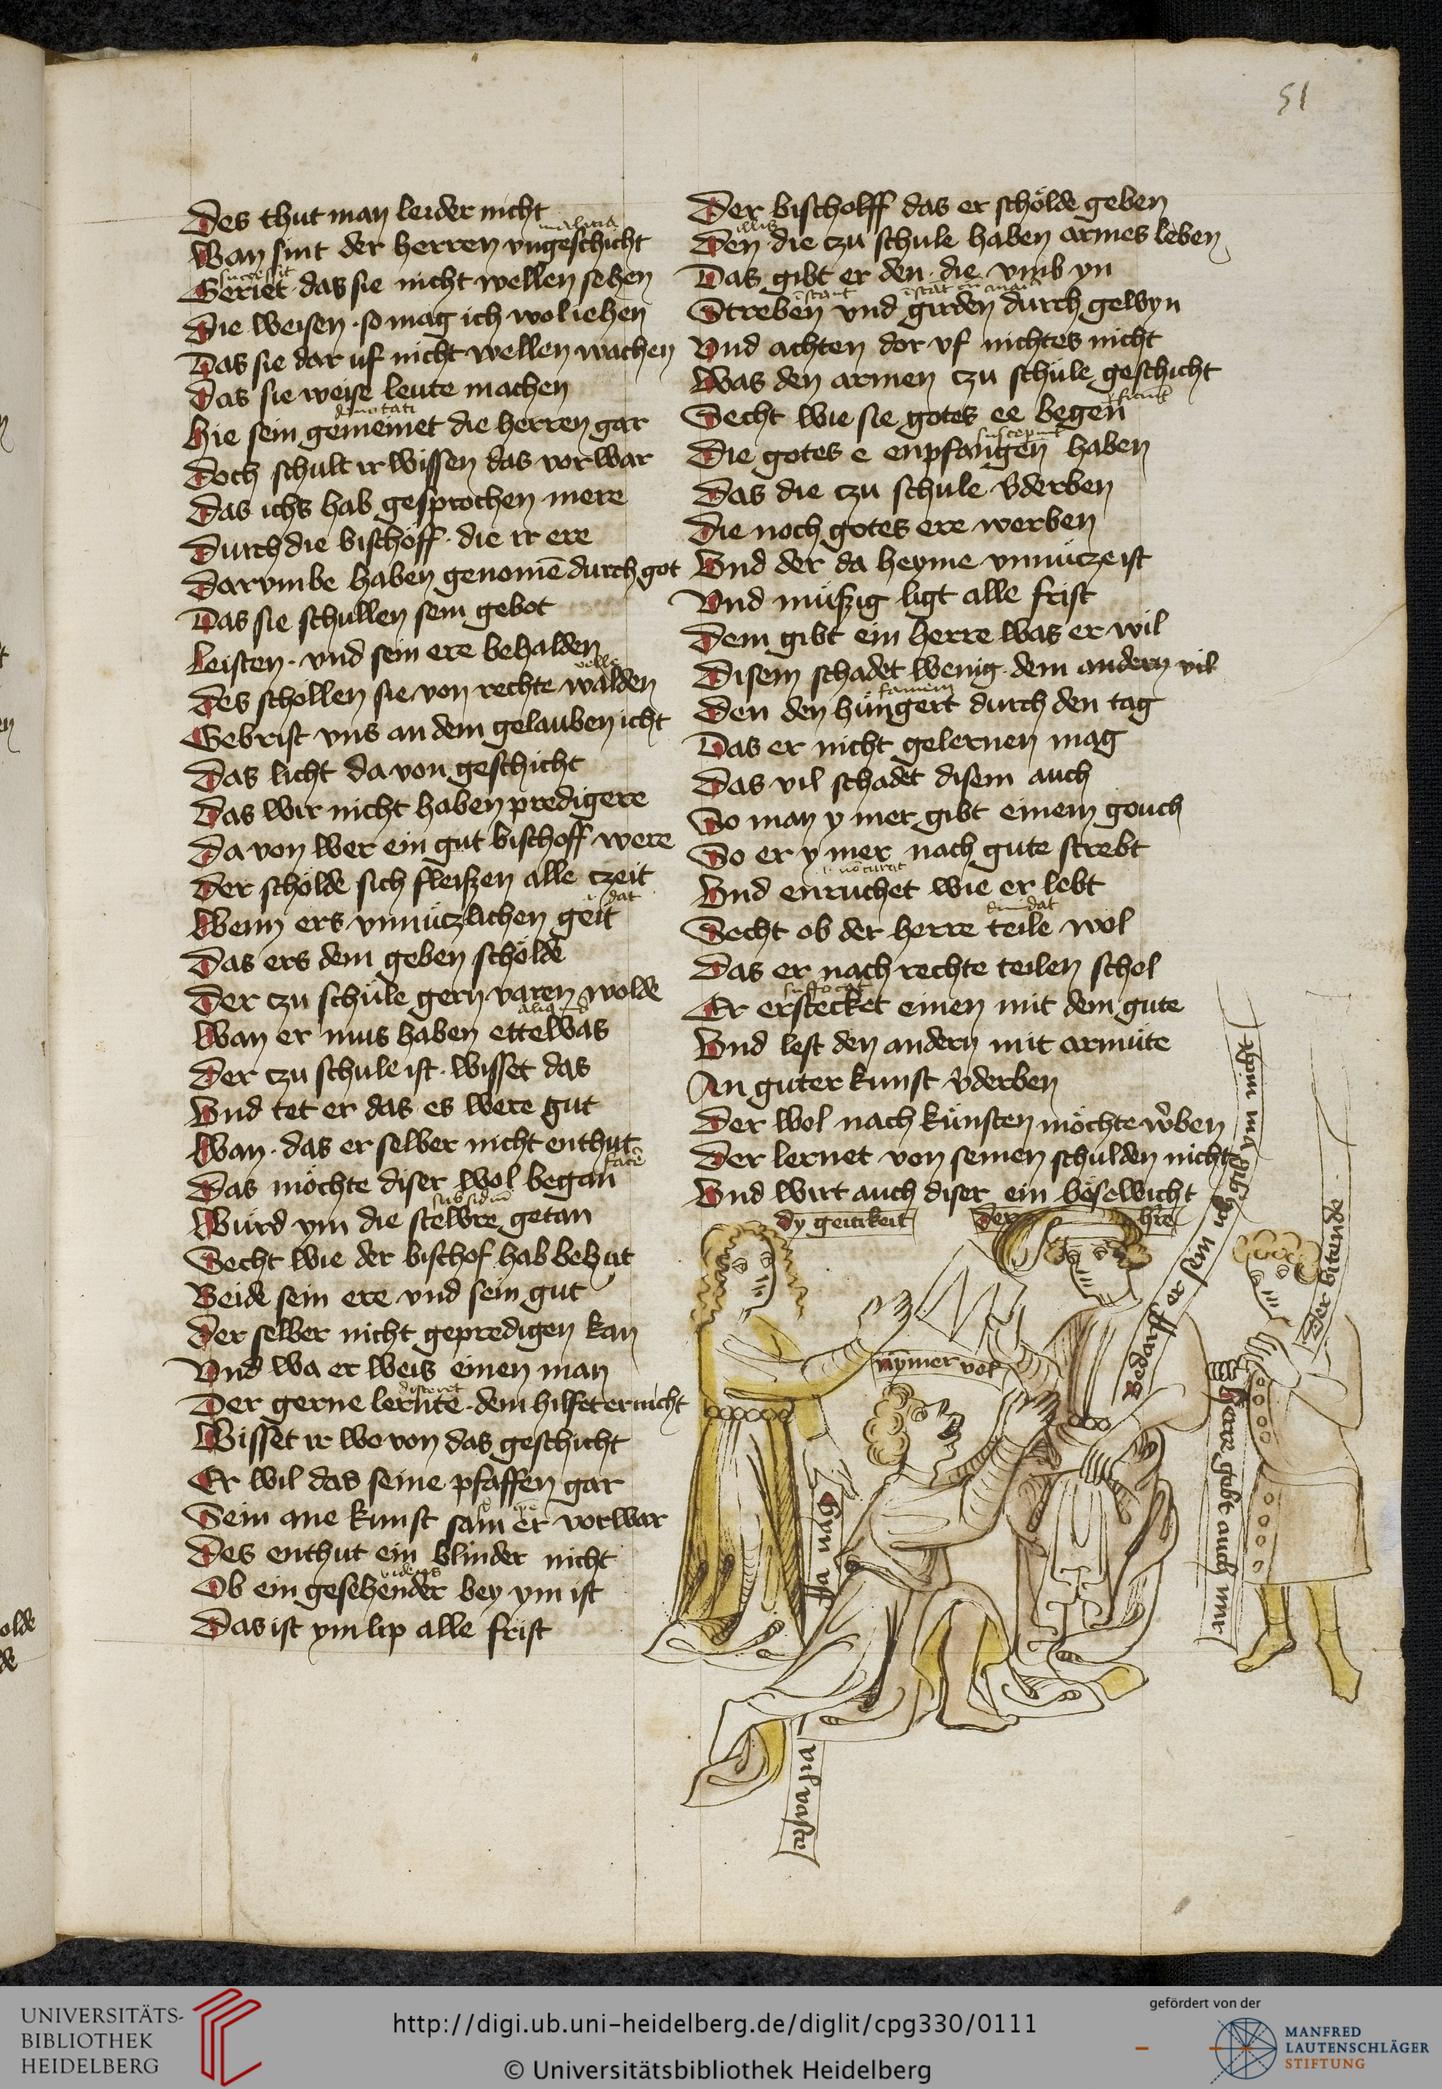 51
Des thut man leider nicht
malicia
Wan sint der herren vngeschicht
successit
Geriet · das sie nicht wellen sehen
Die weisen · so mag ich wol iehen
Das sie dar uf nicht wellen wachen
Das sie weise leute machen
Hie sein gemeinet die herren gar
Doch schult ir wissen das vorwar
Das ichs hab gesprochen mere
Durch die bischoff · die ir ere
Darvmbe haben genomē durch got
Das sie schullen sein gebot
Leisten · vnd sein ere behalden
velle
Des schöllen sie von rechte walden
Gebrist vns an dem gelauben icht
Das licht da von geschicht
Das wir nicht haben predigere
Da von wer ein gut bischoff were
Der schölde sich fleiszen alle czeit
i dat
Wenn ers vnnüczlichen geit
Das ers dem geben schölde
Der czu schule gern varen wolde
aliquid
Wan er mus haben ettelwas
Der czu schule ist · wisset das
Vnd tet er das es were gut
Wan · das er selber nicht enthut
facē
Das möchte diser wol began
subsidiū
Würd ym die stewre getan
Secht wie der bischof hab behut
Beide sein ere vnd sein gut
Der selber nicht gepredigen kan
Vnd wa er weis einen man
disceret
Der gerne lernte · dem hilfet er nicht
Wisset ir wo von das geschicht
Er wil das seine pfaffen gar
Sein ane kunst sam er vorwar
Des enthut ein blinder nicht
videns
Ob ein gesehender bey ym ist
Das ist ym lip alle frist
Der bischolff das er schölde geben
illis
Den die czu schule haben armes leben
Das gibt er den · die vmb yn
Streben vnd girden durch gewyn
Vnd achten dor vf nichtes nicht
Was den armen czu schule geschicht
Secht wie sie gotes ee begen
suscepūt
Die gotes e enpfangen haben
Das die czu schule v̄derben
Die noch gotes ere werben
Vnd der da heyme vnnücze ist
Vnd müszig ligt alle frist
Dem gibt ein herre was er wil
Disem schadet wenig · dem andern vil
famem
Den den hüngert durch den tag
Das er nicht gelernen mag
Das vil schadet disem auch
So man ymer gibt einem gouch
So er ymer nach gute strebt
i nō curat
Vnd enruchet wie er lebt
diuidat
Secht ob der herre teile wol
Das er nach rechte teilen schol
suffocat
Er erstecket einen mit dem gute
Vnd lest den andern mit armüte
An guter kunst v̄derben
Der wol nach künsten möchte w̄ben
Der lernet von seinen schulden nicht
Vnd wirt auch diser ein bösewicht
dy geitikeit
Der hre
nymer vol
Gyn vff
vil vaste
Herre gebt auch mir
der bittende
UNIVERSITÄTS-
BIBLIOTHEK
HEIDELBERG
http://digi.ub.uni-heidelberg.de/diglit/cpg330/0111
© Universitätsbibliothek Heidelberg
gefördert von der
MANFRED
LAUTENSCHLÄGER
STIFTUNG